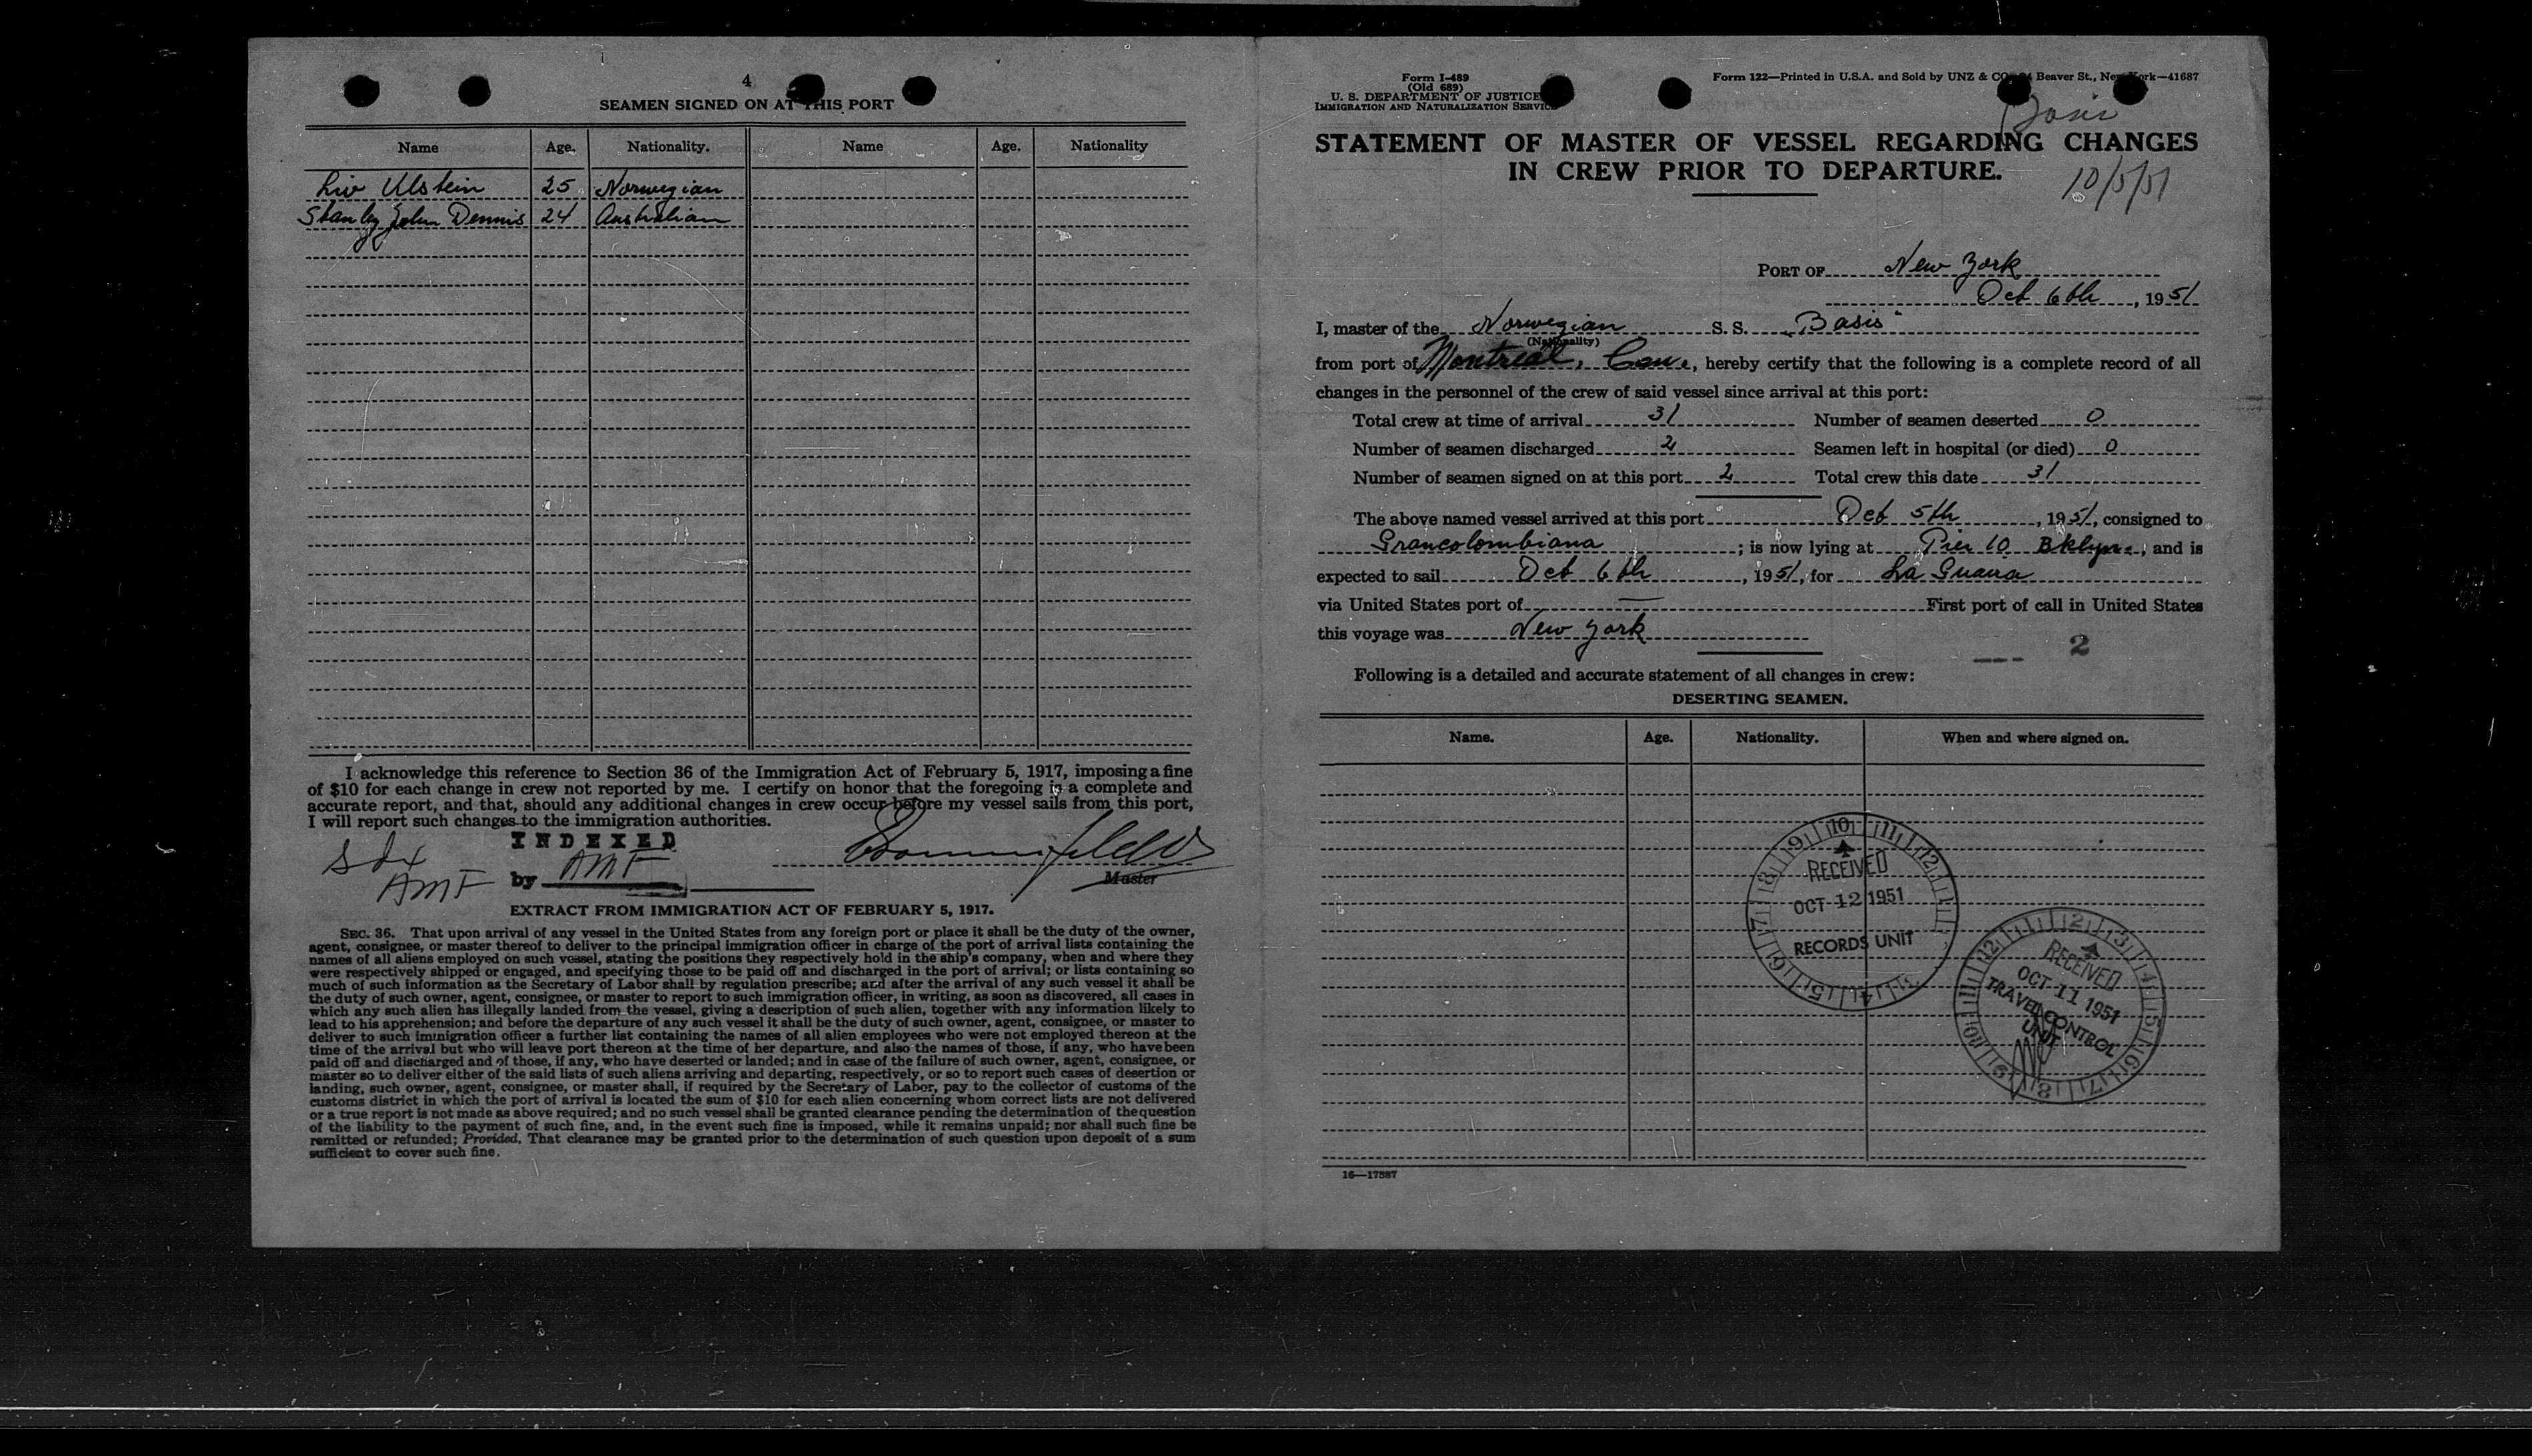 4
SEAMEN SIGNED ON AT THIS PORT
Name Age. Nationality. Name Age. Nationality
Liv Ulstein 25 Norwegian
Stanley John Dennis 24 Australian
I acknowledge this reference to Section 36 of the Immigration Act of February 5, 1917, imposing a fine
of $10 for each change in crew not reported by me. I certify on honor that the foregoing is a complete and
accurate report, and that, should any additional changes in crew occur before my vessel sails from this port,
I will report such changes to the immigration authorities.
INDEXED
by AMF
AMF
Master
EXTRACT FROM IMMIGRATION ACT OF FEBRUARY 5, 1917.
SEC. 36. That upon arrival of any vessel in the United States from any foreign port or place it shall be the duty of the owner,
agent, consignee, or master thereof to deliver to the principal immigration officer in charge of the port of arrival lists containing the
names of all aliens employed on such vessel, stating the positions they respectively hold in the ship's company, when and where they
were respectively shipped or engaged, and specifying those to be paid off and discharged in the port of arrival; or lists containing so
much of such information as the Secretary of Labor shall by regulation prescribe; and after the arrival of any such vessel it shall be
the duty of such owner, agent, consignee, or master to report to such immigration officer, in writing, as soon as discovered, all cases in
which any such alien has illegally landed from the vessel, giving a description of such alien, together with any information likely to
lead to his apprehension; and before the departure of any such vessel it shall be the duty of such owner, agent, consignee, or master to
deliver to such immigration officer a further list containing the names of all alien employees who were not employed thereon at the
time of the arrival but who will leave port thereon at the time of her departure, and also the names of those, if any, who have been
paid off and discharged and of those, if any, who have deserted or landed; and in case of the failure of such owner, agent, consignee, or
master so to deliver either of the said lists of such aliens arriving and departing, respectively, or so to report such cases of desertion or
landing, such owner, agent, consignee, or master shall, if required by the Secretary of Labor, pay to the collector of customs of the
customs district in which the port of arrival is located the sum of $10 for each alien concerning whom correct lists are not delivered
or a true report is not made as above required; and no such vessel shall be granted clearance pending the determination of the question
of the liability to the payment of such fine, and, in the event such fine is imposed, while it remains unpaid; nor shall such fine be
remitted or refunded; Provided, That clearance may be granted prior to the determination of such question upon deposit of a sum
sufficient to cover such fine.
Form I-489
(Old 689)
U. S. DEPARTMENT OF JUSTICE
IMMIGRATION AND NATURALIZATION SERVICE
Form 122—Printed in U.S.A. and Sold by UNZ & CO. Beaver St., New York—41687
Basis
STATEMENT OF MASTER OF VESSEL REGARDING CHANGES
IN CREW PRIOR TO DEPARTURE.
10/5/51
PORT OF New York
Oct 6th, 1951
I, master of the Norwegian S. S. "Basis"
(Nationality)
from port of Montreal, Can., hereby certify that the following is a complete record of all
changes in the personnel of the crew of said vessel since arrival at this port:
Total crew at time of arrival 31 Number of seamen deserted 0
Number of seamen discharged 2 Seamen left in hospital (or died) 0
Number of seamen signed on at this port 2 Total crew this date 31
The above named vessel arrived at this port Oct 5th, 1951, consigned to
Grancolombiana; is now lying at Pier 10 Bklyn., and is
expected to sail Oct 6th, 1951, for La Guaira
via United States port of — First port of call in United States
this voyage was New York
2
Following is a detailed and accurate statement of all changes in crew:
DESERTING SEAMEN.
Name. Age. Nationality. When and where signed on.
RECEIVED
OCT 12 1951
RECORDS UNIT
RECEIVED
OCT 11 1951
TRAVEL CONTROL
UNIT
16—17887